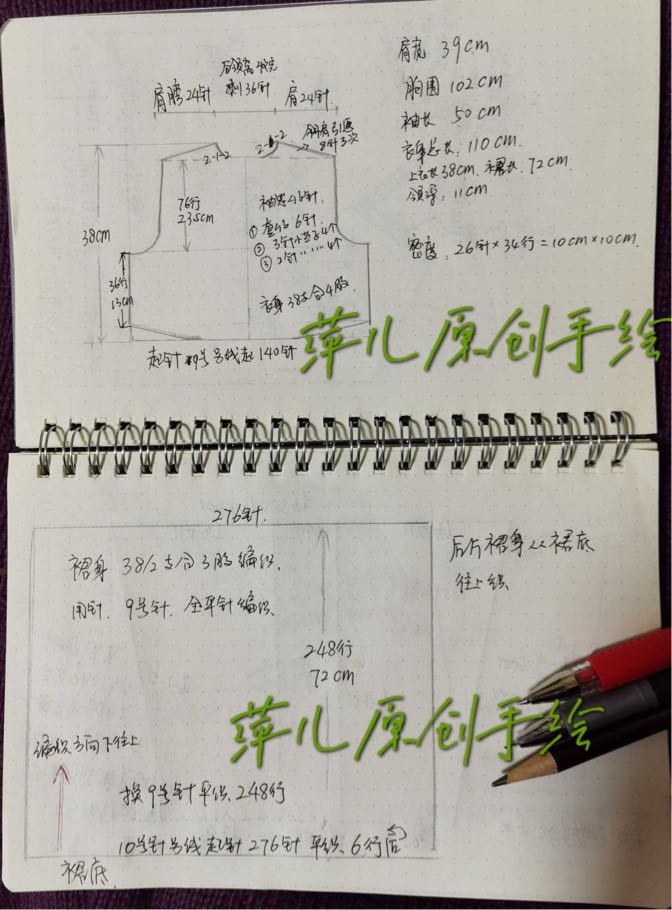 肩宽 39cm
胸围 102cm
袖长 50cm
衣身总长: 110cm
上衣长38cm. 裙长: 72cm.
领深: 11cm
密度: 26针×34行=10cm×10cm.
后领窝
剩36针
肩膀24针
肩24针.
8针3次
2-1-2
38cm
76行
23.5cm
袖窿
① 套收 6针.
②
③ 2针
36行
13cm
衣身38支合4股.
起针 9号 另线起140针
萍儿原创手绘
276针.
裙身 38/2支合3股编织.
用针. 9号针. 全平针编织.
248行
72cm
后片裙身从裙底
往上织
编织方向下往上
萍儿原创手绘
换9号针平织248行
10号针另线起针276针 平织6行后
裙底.